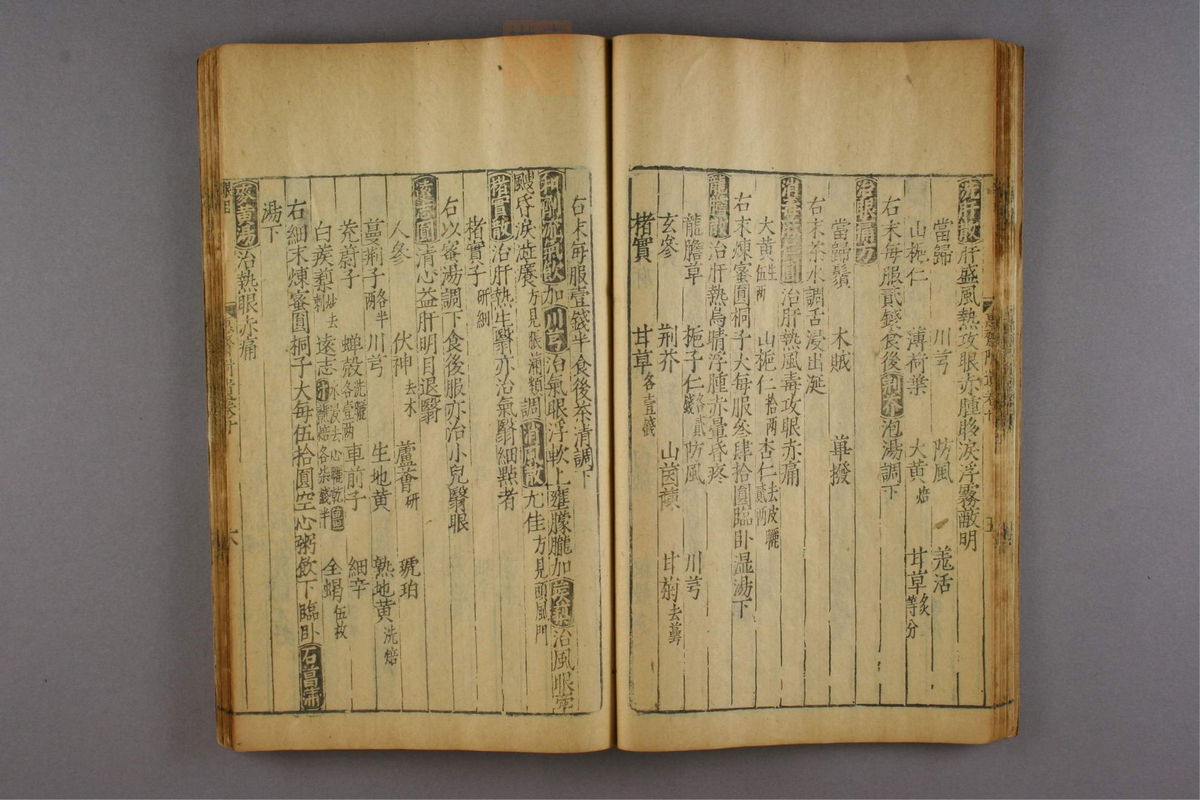 洗肝散 肝盛風熱攻眼赤腫眵淚浮霧蔽明
當歸 川芎 防風 羗活
山梔仁 薄荷葉 大黃焙 甘草炙等分
右末每服貳錢食後荊芥泡湯調下
治眼痛方
當歸鬚 木賊 蓽撥
右末茶水調舌浸出涎
消毒圓 治肝熱風毒攻眼赤痛
大黃生伍兩 山梔仁拾兩 杏仁去皮曬貳兩
右末煉蜜圓桐子大每服叁肆拾圓臨卧温湯下
龍膽散 治肝熱烏睛浮腫赤暈昏疼
龍膽草 梔子仁各貳錢 防風 川芎
玄參 荊芥 山茵蔯 甘菊去蕚
楮實 甘草各壹錢
右末每服壹錢半食後茶清調下
流氣飲加川芎治氣眼浮軟上壅朦朧加蒺䔧治風眼
昏淚 方見脹滿類 調消風散尤佳方見頭風門
楮實散 治肝熱生翳亦治氣翳細點者
楮實子研細
右以蜜湯調下食後服亦治小兒翳眼
遠志圓 清心益肝明目退翳
人參 伏神去木 蘆薈研 琥珀
蔓荊子各半兩 川芎 生地黃 熟地黃洗焙
茺蔚子 蟬殼洗曬各壹兩 車前子 細辛
白蒺䔧炒去刺 遠志水浸去心曬乾各柒錢半 全蝎伍枚
右細末煉蜜圓桐子大每伍拾圓空心粥飲下臨卧石菖蒲
湯下
麥黃湯 治熱眼赤痛
六